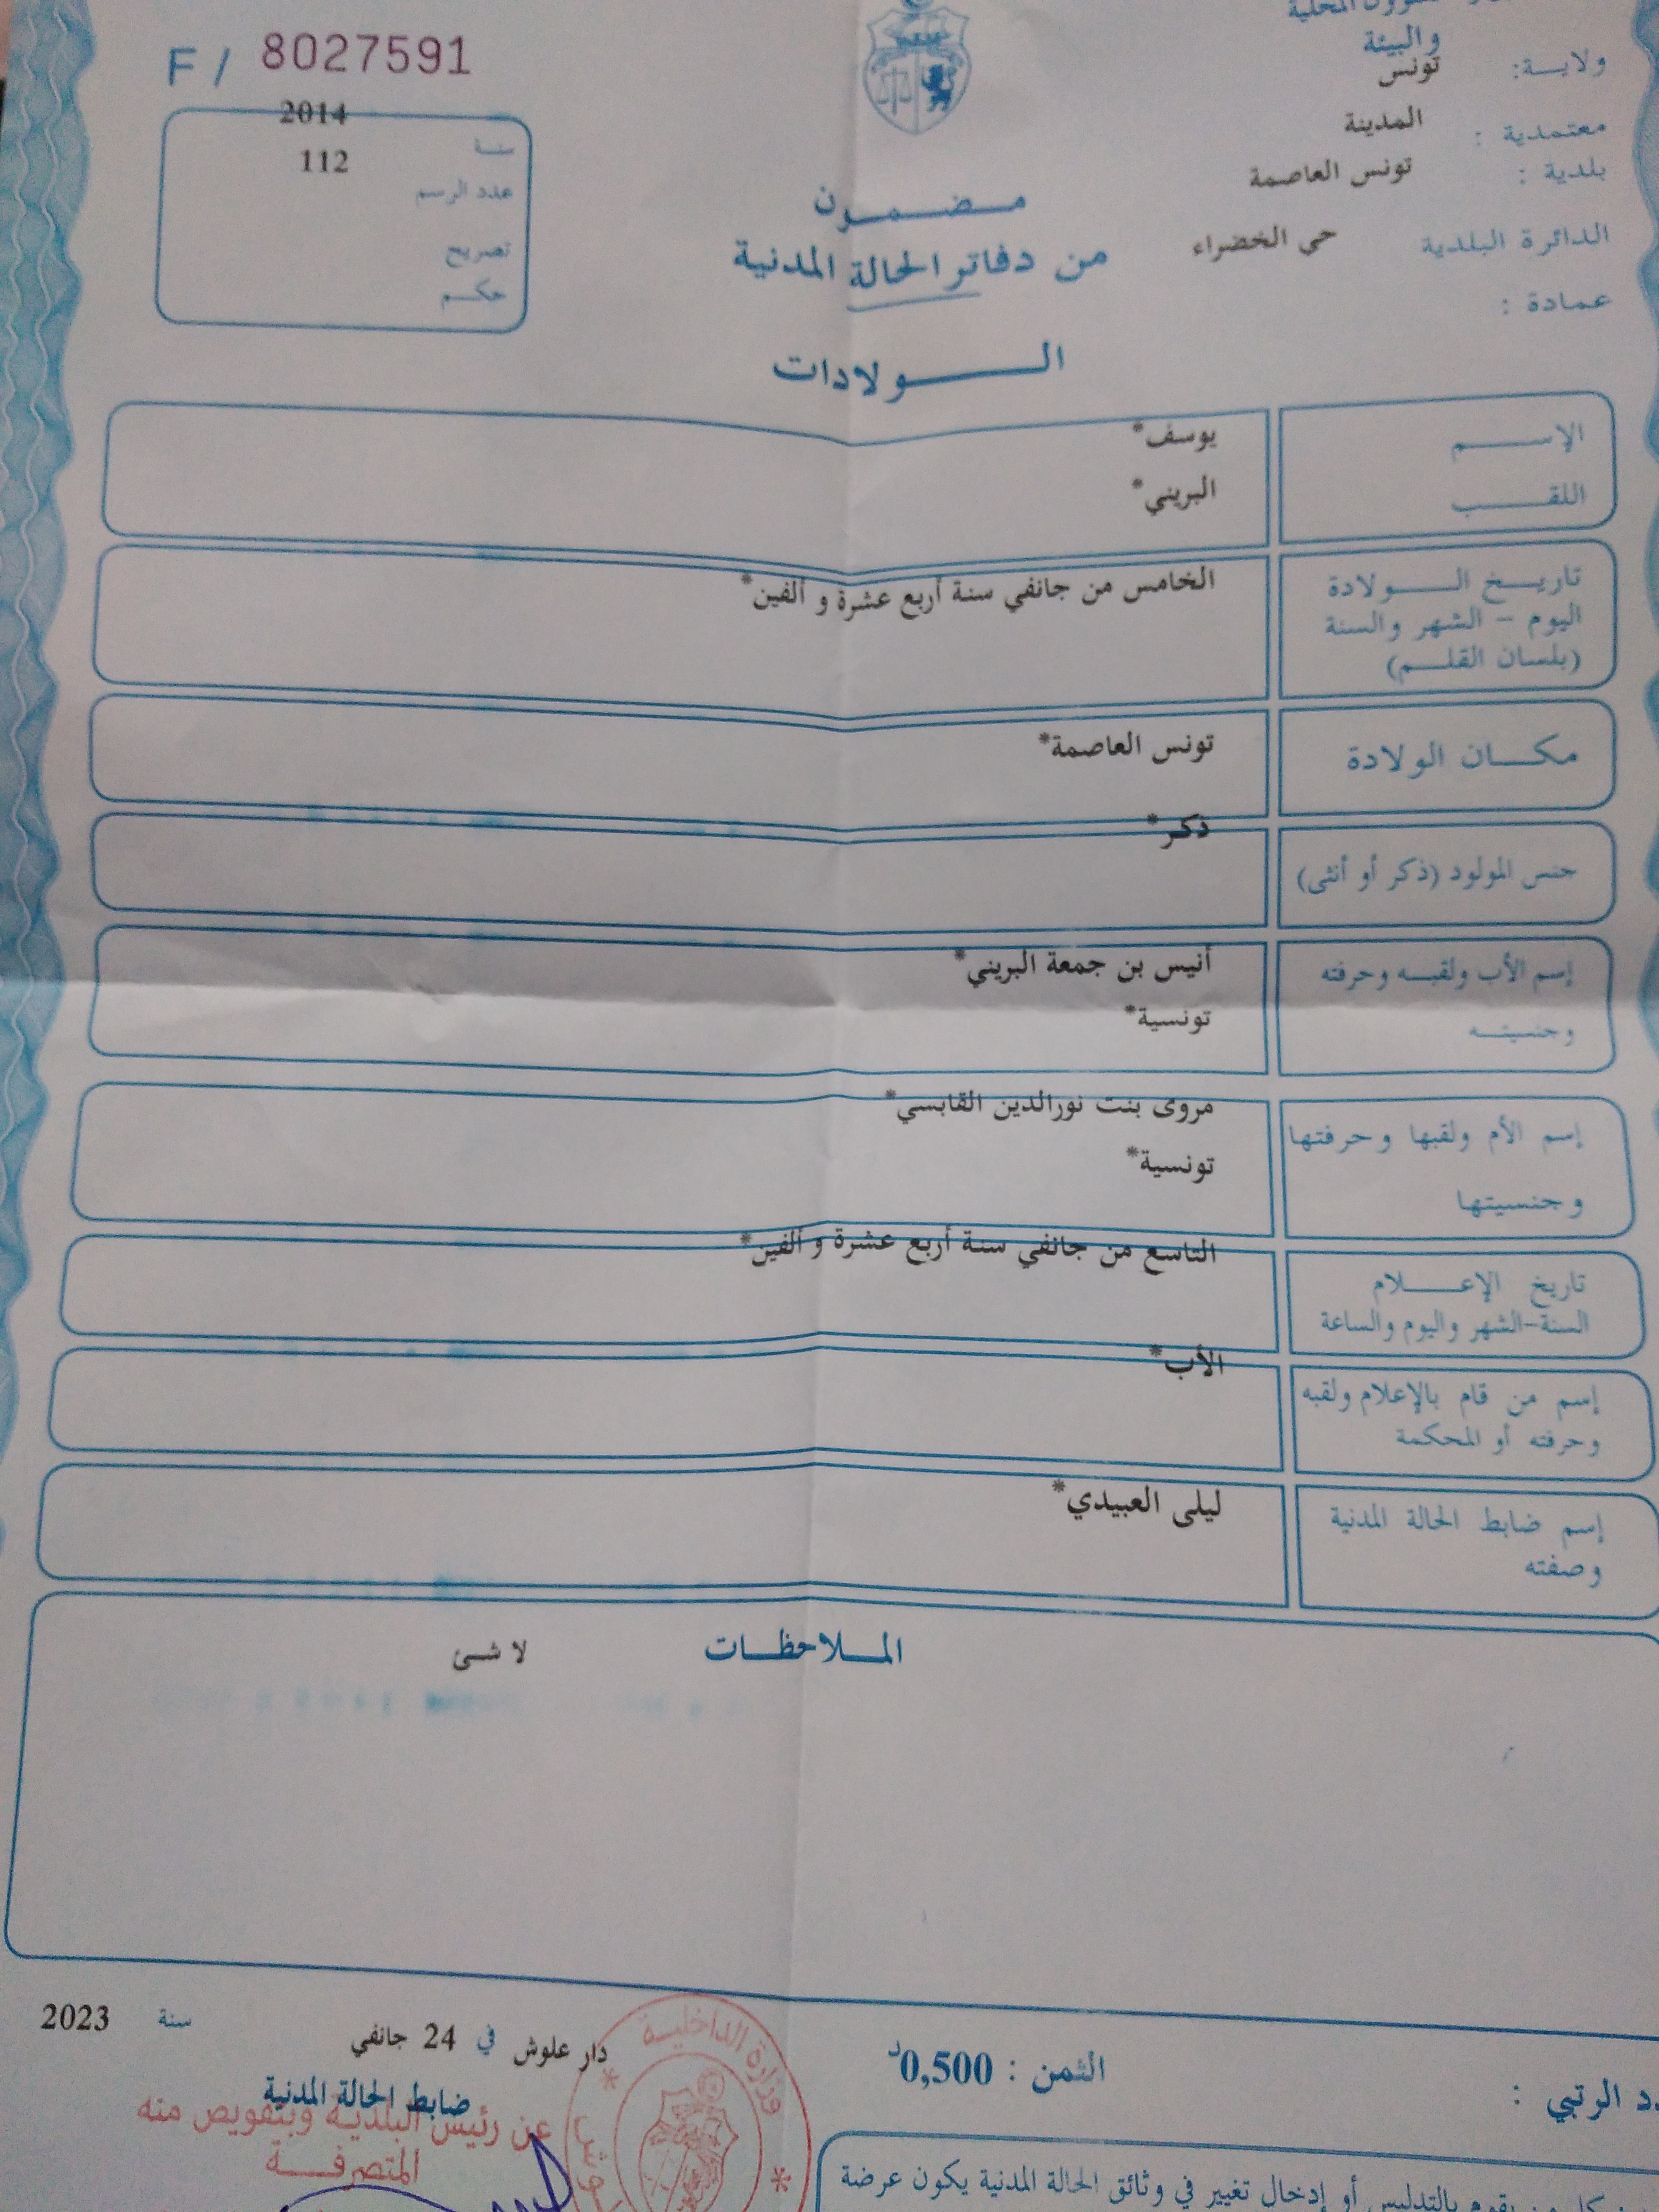 F / 8027591
2014
سنة
112
عدد الرسم
تصريح
حكم
والبيئة
ولاية: تونس
معتمدية : المدينة
بلدية : تونس العاصمة
الدائرة البلدية حي الخضراء
عمادة :
مضمون
من دفاتر الحالة المدنية
الولادات
الإسم يوسف*
اللقب البريني*
تاريخ الولادة الخامس من جانفي سنة أربع عشرة و ألفين*
اليوم - الشهر والسنة
(بلسان القلم)
مكان الولادة تونس العاصمة*
جنس المولود (ذكر أو أنثى) ذكر*
إسم الأب ولقبه وحرفته أنيس بن جمعة البريني*
وجنسيته تونسية*
إسم الأم ولقبها وحرفتها مروى بنت نورالدين القابسي*
وجنسيتها تونسية*
تاريخ الإعلام التاسع من جانفي سنة أربع عشرة و ألفين*
السنة-الشهر واليوم والساعة
إسم من قام بالإعلام ولقبه الأب*
وحرفته أو المحكمة
إسم ضابط الحالة المدنية ليلى العبيدي*
وصفته
الملاحظات لا شئ
دار علوش في 24 جانفي سنة 2023
ضابط الحالة المدنية
عن رئيس البلدية وبتفويض منه
المتصرفة
وزارة الداخلية
الثمن : 0,500د
الرتبي :
يقوم بالتدليس أو إدخال تغيير في وثائق الحالة المدنية يكون عرضة